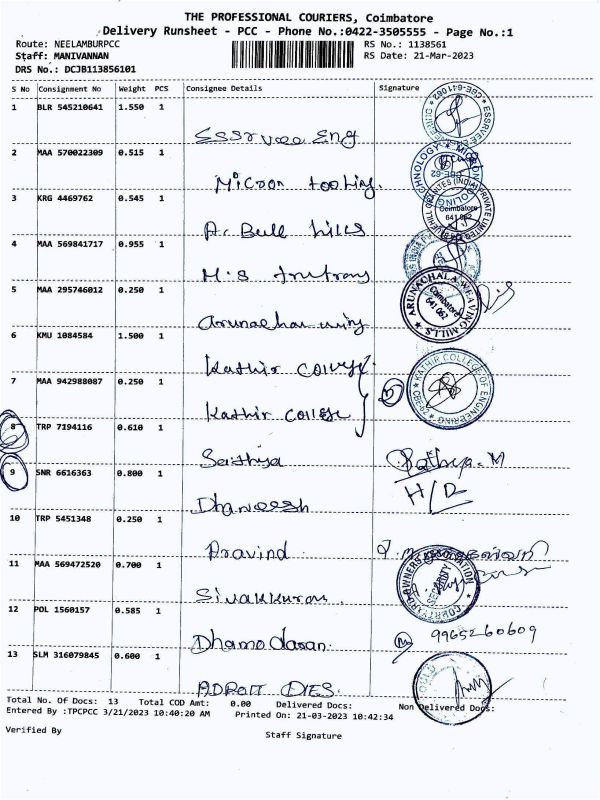 THE PROFESSIONAL COURIERS, Coimbatore
Delivery Runsheet - PCC - Phone No.:0422-3505555 - Page No.:1
Route: NEELAMBURPCC RS No.: 1138561
Staff: MANIVANNAN RS Date: 21-Mar-2023
DRS No.: DCJB113856101
S No Consignment No Weight PCS Consignee Details Signature
1 BLR 545210641 1.550 1
Essrvee Eng
2 MAA 570022309 0.515 1
Micron tooling.
3 KRG 4469762 0.545 1
Bull hills
Coimbatore
4 MAA 569841717 0.955 1
M.s
5 MAA 295746012 0.250 1
ARUNACHALA WEAVING MILLS
Coimbatore
641 062
6 KMU 1084584 1.500 1
Kathir college
KATHIR COLLEGE OF ENGINEERING
7 MAA 942988087 0.250 1
Kathir college
8 TRP 7194116 0.610 1
Sathya Sathya.M
9 SNR 6616363 0.800 1
H/D
Dhaneesh
10 TRP 5451348 0.250 1
Aravind
11 MAA 569472520 0.700 1
OWNERS ASSOCIATION
12 POL 1560157 0.585 1
9965260609
Dhamodaran.
13 SLM 316079845 0.600 1
ADROIT DIES.
Total No. Of Docs: 13 Total COD Amt: 0.00 Delivered Docs: Non Delivered Docs:
Entered By :TPCPCC 3/21/2023 10:40:20 AM Printed On: 21-03-2023 10:42:34
Verified By Staff Signature